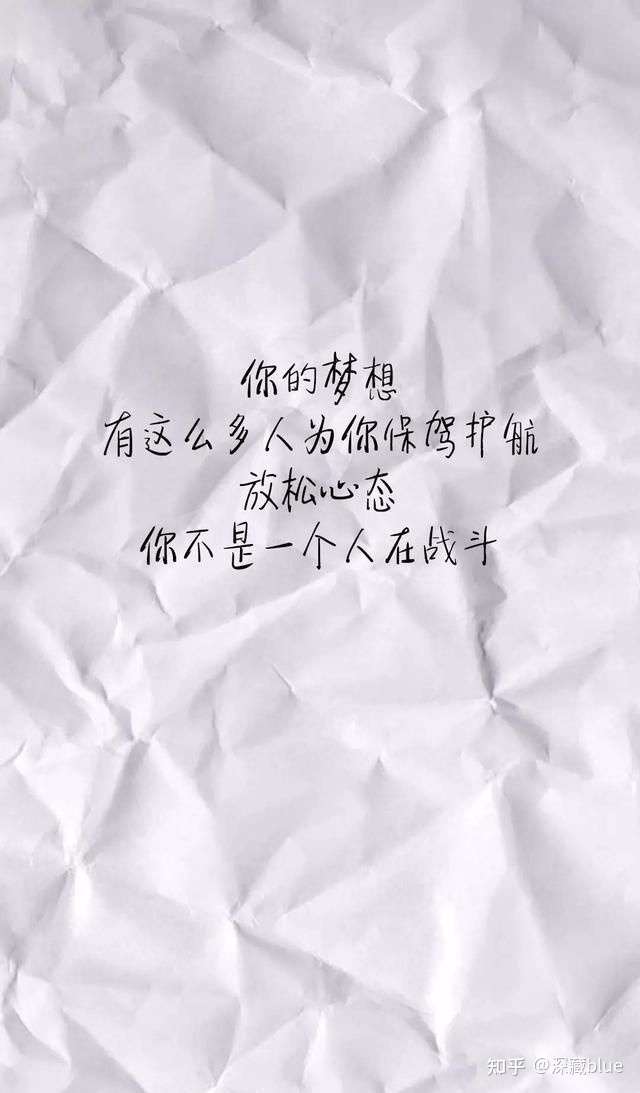 你的梦想
有这么多人为你保驾护航
放松心态
你不是一个人在战斗
知乎 @深藏blue